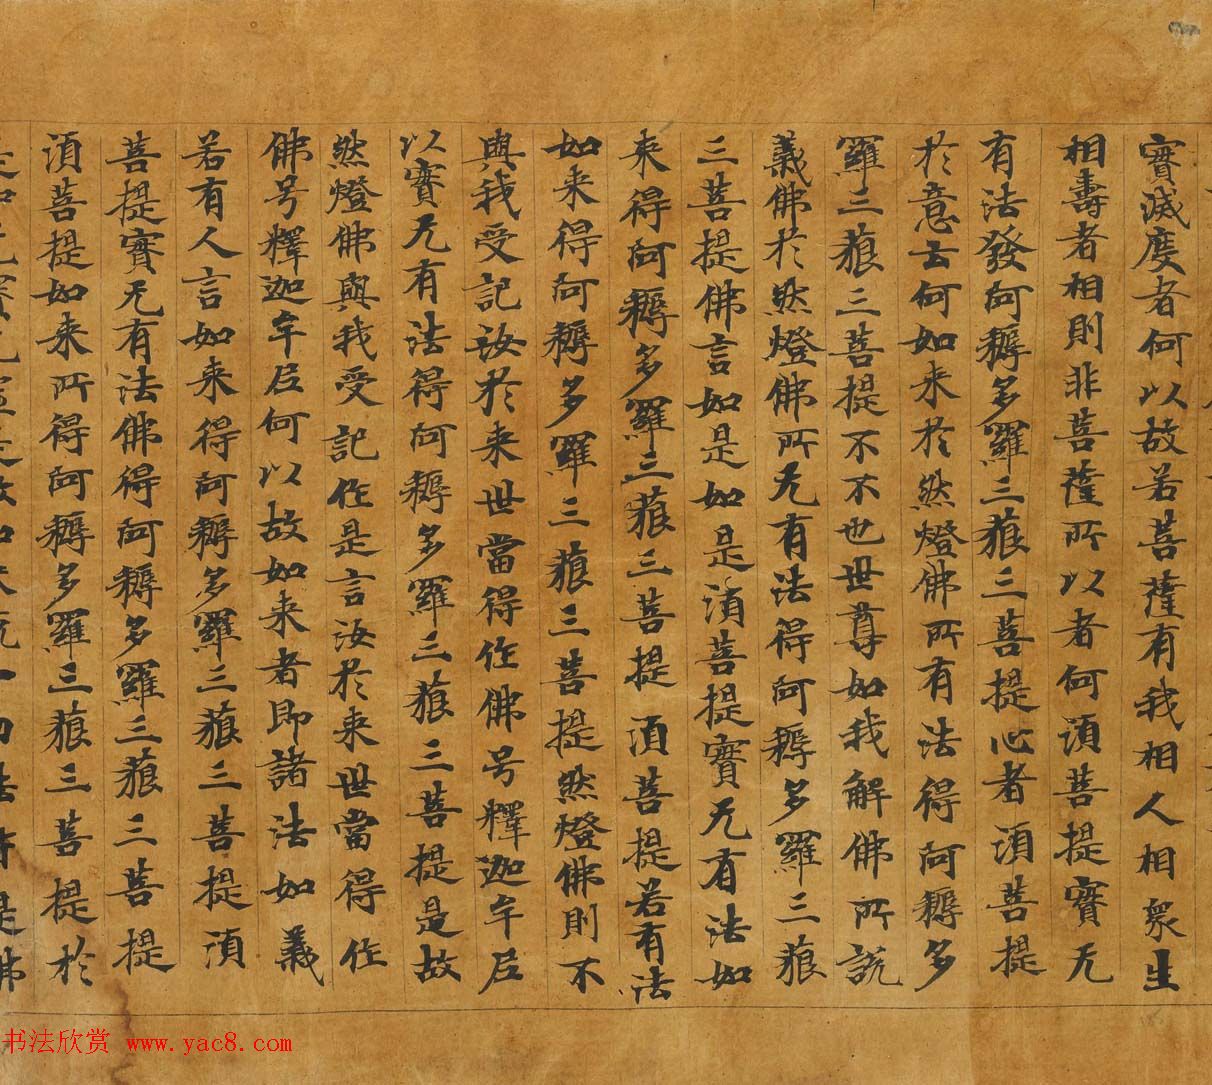 實滅度者何以故若菩薩有我相人相衆生
相壽者相則非菩薩所以者何湏菩提實无
有法發阿耨多羅三藐三菩提心者湏菩提
於意云何如来於然燈佛所有法得阿耨多
羅三藐三菩提不不也世尊如我解佛所說
義佛於然燈佛所无有法得阿耨多羅三藐
三菩提佛言如是如是湏菩提實无有法如
来得阿耨多羅三藐三菩提湏菩提若有法
如来得阿耨多羅三藐三菩提然燈佛則不
與我受記汝於来世當得作佛号釋迦牟尼
以實无有法得阿耨多羅三藐三菩提是故
然燈佛與我受記作是言汝於来世當得作
佛号釋迦牟尼何以故如来者即諸法如義
若有人言如来得阿耨多羅三藐三菩提湏
菩提實无有法佛得阿耨多羅三藐三菩提
湏菩提如来所得阿耨多羅三藐三菩提於
书法欣赏 www.yac8.com